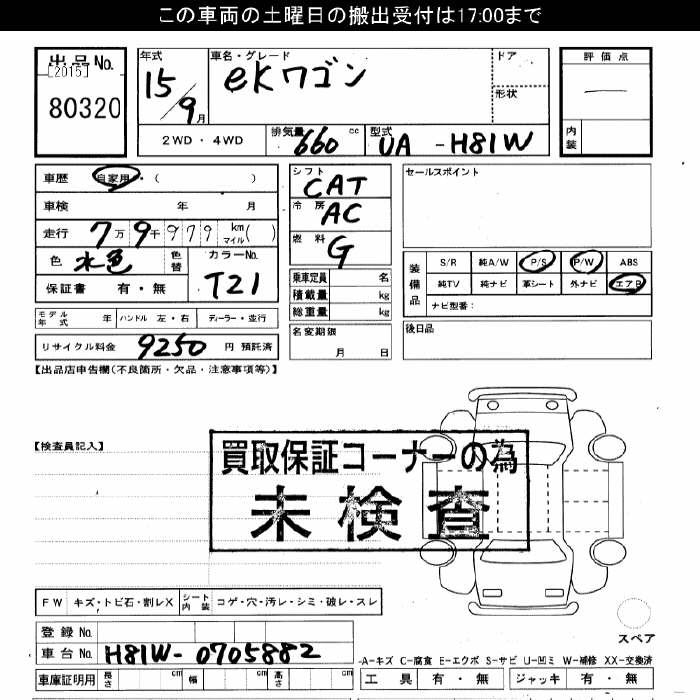 この車両の土曜日の搬出受付は17:00まで
出品No.
[2015]
80320
年式 15/9月
車名・グレード ekワゴン
ドア
形状
評価点
—
内装
2WD・4WD 排気量 660 cc 型式 UA-H81W
車歴 自家用・( )
車検 年 月
走行 7万9千979 km マイル( )
色 水色 色替 カラーNo. T21
保証書 有・無
シフト CAT
冷房 AC
燃料 G
乗車定員 名
積載量 kg
総重量 kg
セールスポイント
装備品 S/R 純A/W P/S P/W ABS
純TV 純ナビ 革シート 外ナビ エアB
ナビ型番:
モデル年式 年 ハンドル 左・右 ディーラー・並行
名変期限 月 日
後日品
リサイクル料金 9250 円 預託済
【出品店申告欄(不良箇所・欠品・注意事項等)】
【検査員記入】
買取保証コーナーの為
未検査
FW キズ・トビ石・割レX シート内装 コゲ・穴・汚レ・シミ・破レ・スレ
スペア
登録No.
車台No. H81W-0705882
-A-キズ C-腐食 E-エクボ S-サビ U-凹ミ W-補修 XX-交換済
車庫証明用 長さ cm 幅 cm 高さ cm
工具 有・無 ジャッキ 有・無